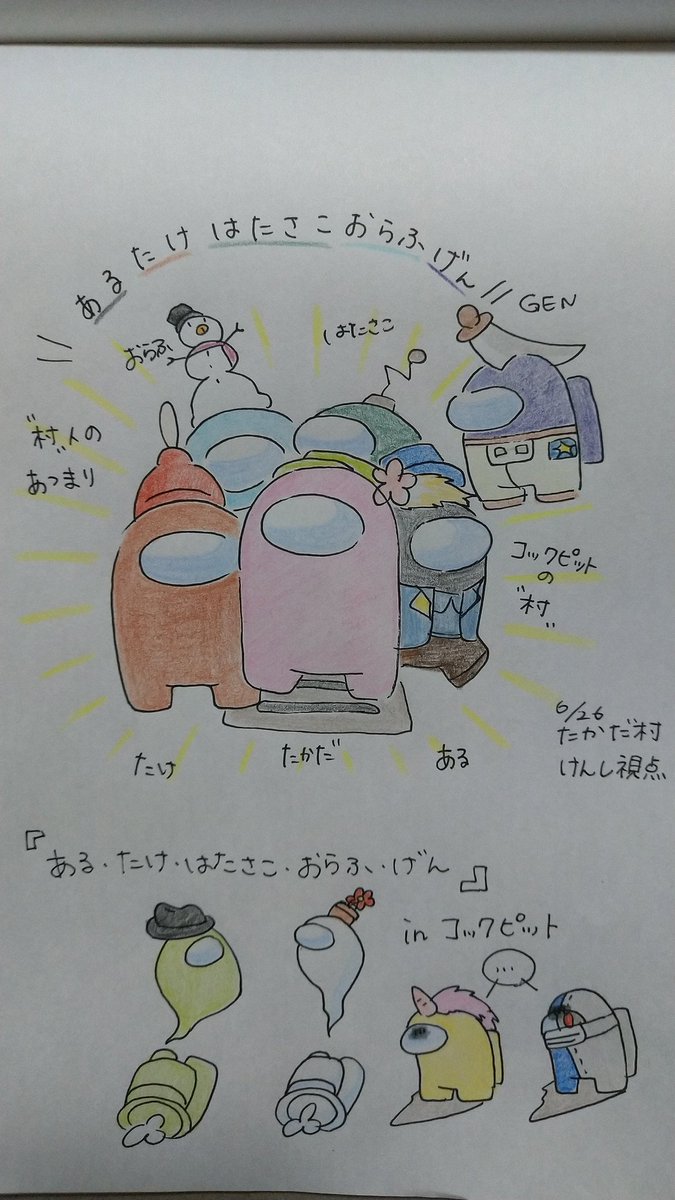 あるたけはたさこおらふげん//
GEN
おらふ
はたさこ
"村"人の
あつまり
コックピット
の
"村"
6/26
たかだ村
けんし視点
たけ
たかだ
ある
『ある・たけ・はたさこ・おらふ・げん』
in コックピット
...